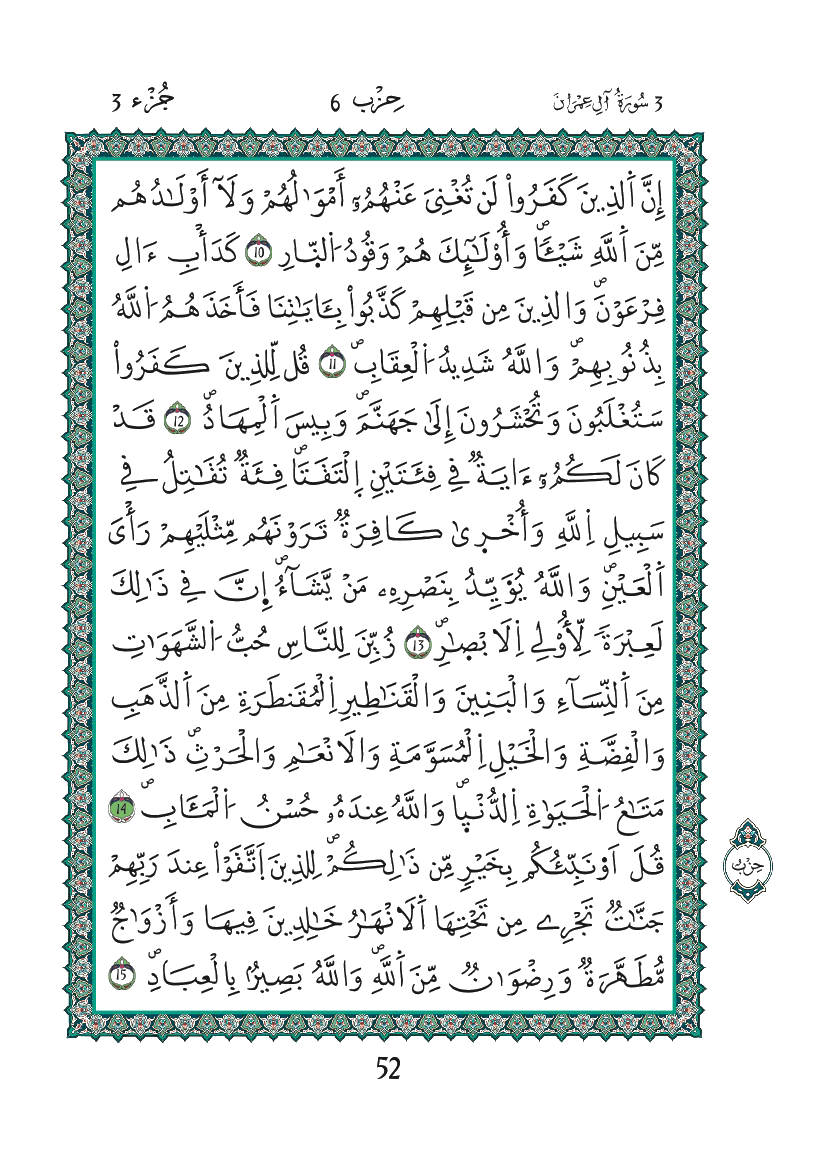 3 سُورَةُ آلِ عِمْرَانَ
حِزْب 6
جُزْء 3
إِنَّ اَ۬لذِينَ كَفَرُواْ لَن تُغْنِيَ عَنْهُمُۥٓ أَمْوَٰلُهُمْ وَلَآ أَوْلَٰدُهُم
مِّنَ اَ۬للَّهِ شَيْـٔاٗۖ وَأُوْلَٰٓئِكَ هُمْ وَقُودُ اُ۬لنّ۪ارِ 10 كَدَأْبِ ءَالِ
فِرْعَوْنَۖ وَالذِينَ مِن قَبْلِهِمْ كَذَّبُواْ بِـَٔايَٰتِنَا فَأَخَذَهُمُ اُ۬للَّهُ
بِذُنُوبِهِمْۖ وَاللَّهُ شَدِيدُ اُ۬لْعِقَابِۖ 11 قُل لِّلذِينَ كَفَرُواْ
سَتُغْلَبُونَ وَتُحْشَرُونَ إِلَىٰ جَهَنَّمَۖ وَبِيسَ اَ۬لْمِهَادُۖ 12 قَدْ
كَانَ لَكُمُۥٓ ءَايَةٞ فِے فِئَتَيْنِ اِ۪لْتَقَتَاۖ فِئَةٞ تُقَٰتِلُ فِے
سَبِيلِ اِ۬للَّهِ وَأُخْر۪ىٰ كَافِرَةٞ تَرَوْنَهُم مِّثْلَيْهِمْ رَأْىَ
اَ۬لْعَيْنِۖ وَاللَّهُ يُؤَيِّدُ بِنَصْرِهِۦ مَنْ يَّشَآءُۖ اِنَّ فِے ذَٰلِكَ
لَعِبْرَةٗ لِّأُوْلِے اِ۬لَابْصٰ۪رِۖ 13 زُيِّنَ لِلنَّاسِ حُبُّ اُ۬لشَّهَوَٰتِ
مِنَ اَ۬لنِّسَآءِ وَالْبَنِينَ وَالْقَنَٰطِيرِ اِ۬لْمُقَنطَرَةِ مِنَ اَ۬لذَّهَبِ
وَالْفِضَّةِ وَالْخَيْلِ اِ۬لْمُسَوَّمَةِ وَالَانْعَٰمِ وَالْحَرْثِۖ ذَٰلِكَ
مَتَٰعُ اُ۬لْحَيَوٰةِ اِ۬لدُّنْي۪اۖ وَاللَّهُ عِندَهُۥ حُسْنُ اُ۬لْمَـَٔابِۖ 14
قُلَ اَو۟نَبِّئُكُم بِخَيْرٖ مِّن ذَٰلِكُمْۖ لِلذِينَ اَ۪تَّقَوْاْ عِندَ رَبِّهِمْ
جَنَّٰتٞ تَجْرِے مِن تَحْتِهَا اَ۬لَانْهَٰرُ خَٰلِدِينَ فِيهَا وَأَزْوَٰجٞ
مُّطَهَّرَةٞ وَرِضْوَٰنٞ مِّنَ اَ۬للَّهِۖ وَاللَّهُ بَصِيرُۢ بِالْعِبَادِۖ 15
حِزْب
52